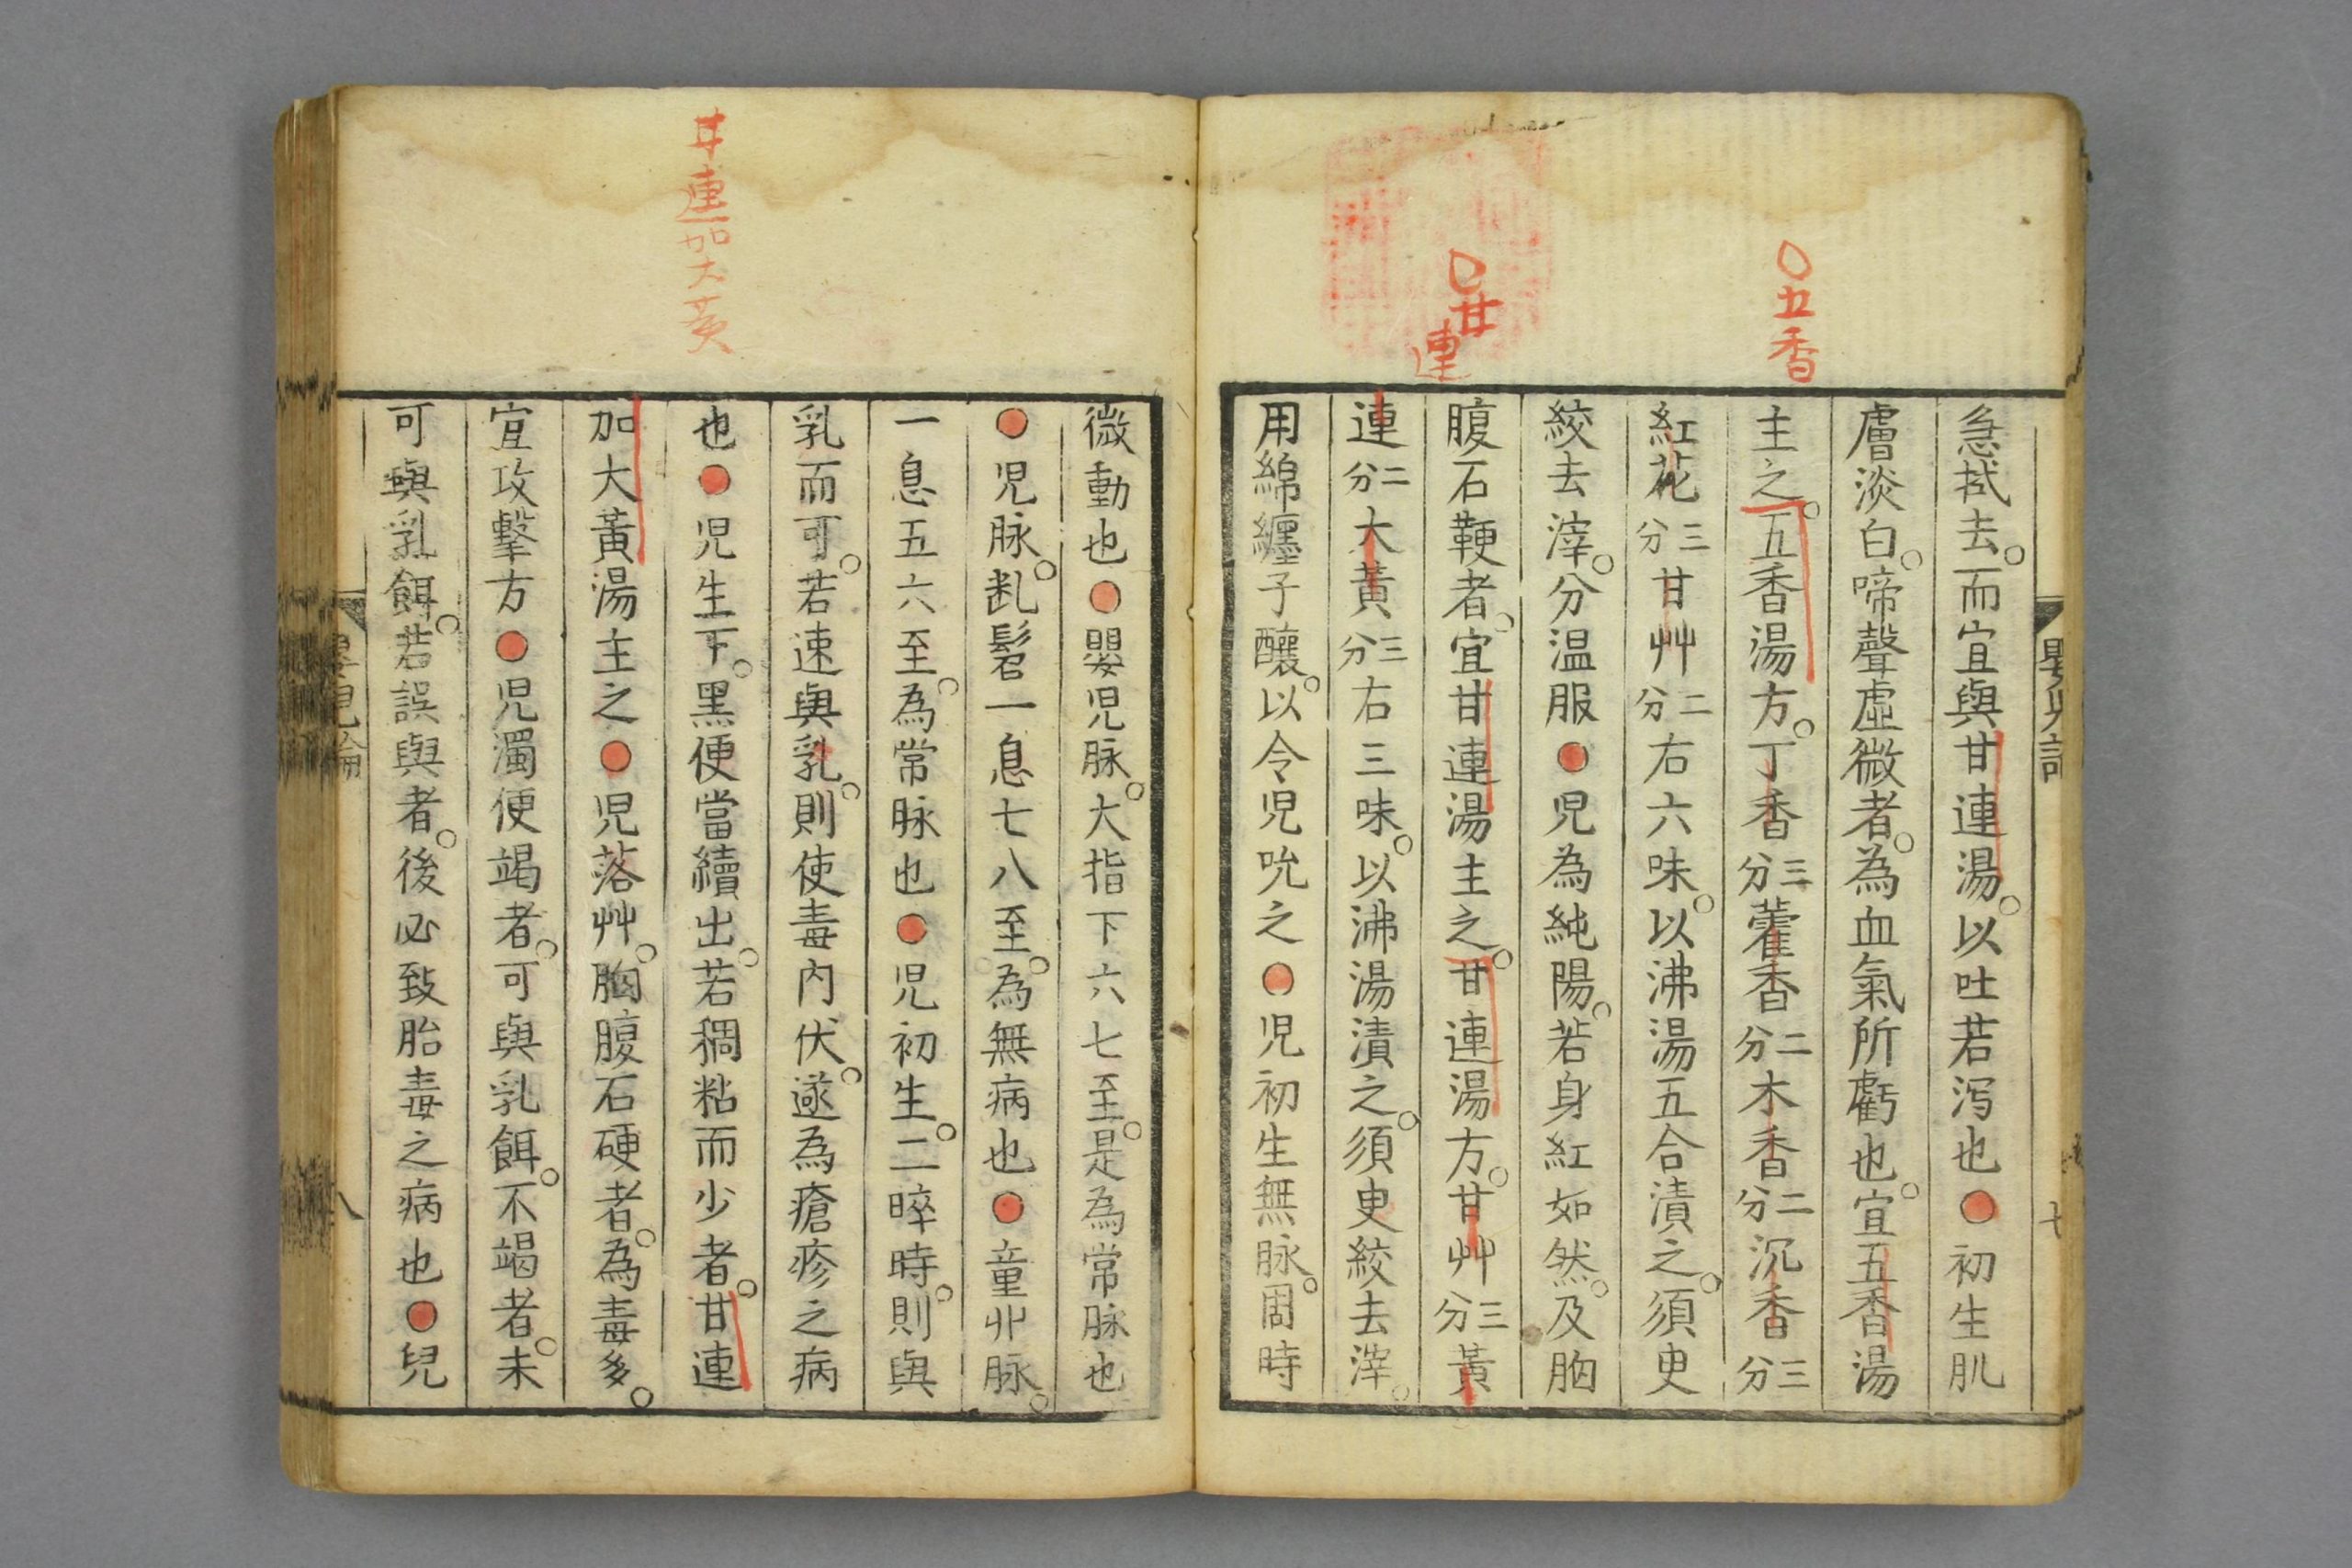 ○五香
○甘
連
急拭去。而宜與甘連湯。以吐若泻也●初生肌
膚淡白。啼聲虛微者。為血氣所虧也。宜五香湯
主之。五香湯方。丁香三分藿香二分木香二分沉香三分
紅花三分甘艸二分右六味。以沸湯五合漬之。須臾
絞去滓。分温服●児為純陽。若身紅如然。及胸
腹石鞕者。宜甘連湯主之。甘連湯方。甘艸三分黃
連二分大黃三分右三味。以沸湯漬之。須臾絞去滓。
用綿纏子釀。以令児吮之●児初生無脉。周時
七
甘連加大黃
微動也●嬰児脉。大指下六七至。是為常脉也
●児脉。亂髫一息七八至。為無病也●童丱脉。
一息五六至。為常脉也●児初生。二晬時。則與
乳而可。若速與乳。則使毒内伏。遂為瘡疹之病
也●児生下。黑便當續出。若稠粘而少者。甘連
加大黃湯主之●児落艸。胸腹石硬者。為毒多。
宜攻擊方●児濁便竭者。可與乳餌。不竭者。未
可與乳餌。若誤與者。後必致胎毒之病也●兒
八